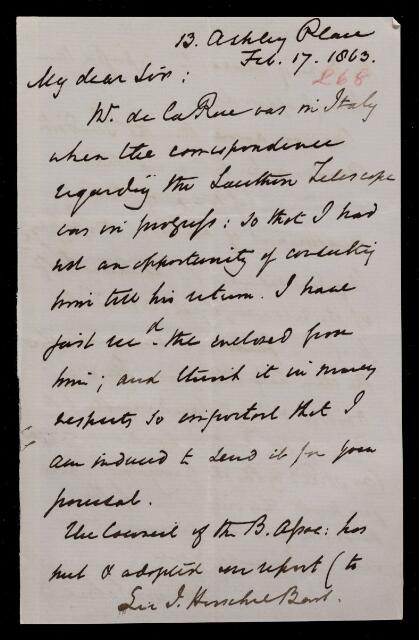 13. Ashley Place
Feb. 17. 1863.
L68
My dear Sir:
W. de la Rue was in Italy
when the correspondence
regarding the Southern Telescope
was in progress: so that I had
not an opportunity of consulting
him till his return. I have
just recd. the enclosed from
him; and think it in many
respects so important that I
am induced to send it for your
perusal.
The Council of the B. Assoc: has
met & adopted our report (to
Sir J. Herschel Bart.